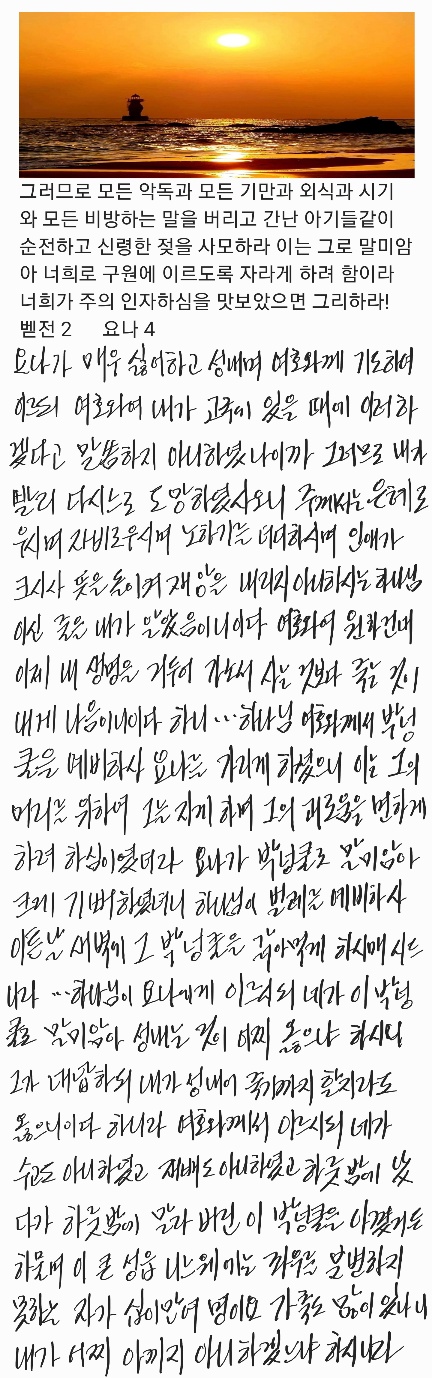 그러므로 모든 악독과 모든 기만과 외식과 시기
와 모든 비방하는 말을 버리고 간난 아기들같이
순전하고 신령한 젖을 사모하라 이는 그로 말미암
아 너희로 구원에 이르도록 자라게 하려 함이라
너희가 주의 인자하심을 맛보았으면 그리하라!
벧전 2 요나 4
요나가 매우 싫어하고 성내며 여호와께 기도하여
이르되 여호와여 내가 고국에 있을 때에 이러하
겠다고 말씀하지 아니하였나이까 그러므로 내가
빨리 다시스로 도망하였사오니 주께서는 은혜로
우시며 자비로우시며 노하기를 더디하시며 인애가
크시사 뜻을 돌이켜 재앙을 내리지 아니하시는 하나님
이신 줄을 내가 알았음이니이다 여호와여 원하건대
이제 내 생명을 거두어 가소서 사는 것보다 죽는 것이
내게 나음이니이다 하니 ···하나님 여호와께서 박넝
쿨을 예비하사 요나를 가리게 하셨으니 이는 그의
머리를 위하여 그늘 지게 하며 그의 괴로움을 면하게
하려 하심이었더라 요나가 박넝쿨로 말미암아
크게 기뻐하였더니 하나님이 벌레를 예비하사
이튿날 새벽에 그 박넝쿨을 갉아먹게 하시매 시드
니라 ···하나님이 요나에게 이르시되 네가 이 박넝
쿨로 말미암아 성내는 것이 어찌 옳으냐 하시니
그가 대답하되 내가 성내어 죽기까지 할지라도
옳으니이다 하니라 여호와께서 이르시되 네가
수고도 아니하였고 재배도 아니하였고 하룻밤에 났
다가 하룻밤에 말라 버린 이 박넝쿨을 아꼈거든
하물며 이 큰 성읍 니느웨에는 좌우를 분별하지
못하는 자가 십이만여 명이요 가축도 많이 있나니
내가 어찌 아끼지 아니하겠느냐 하시니라